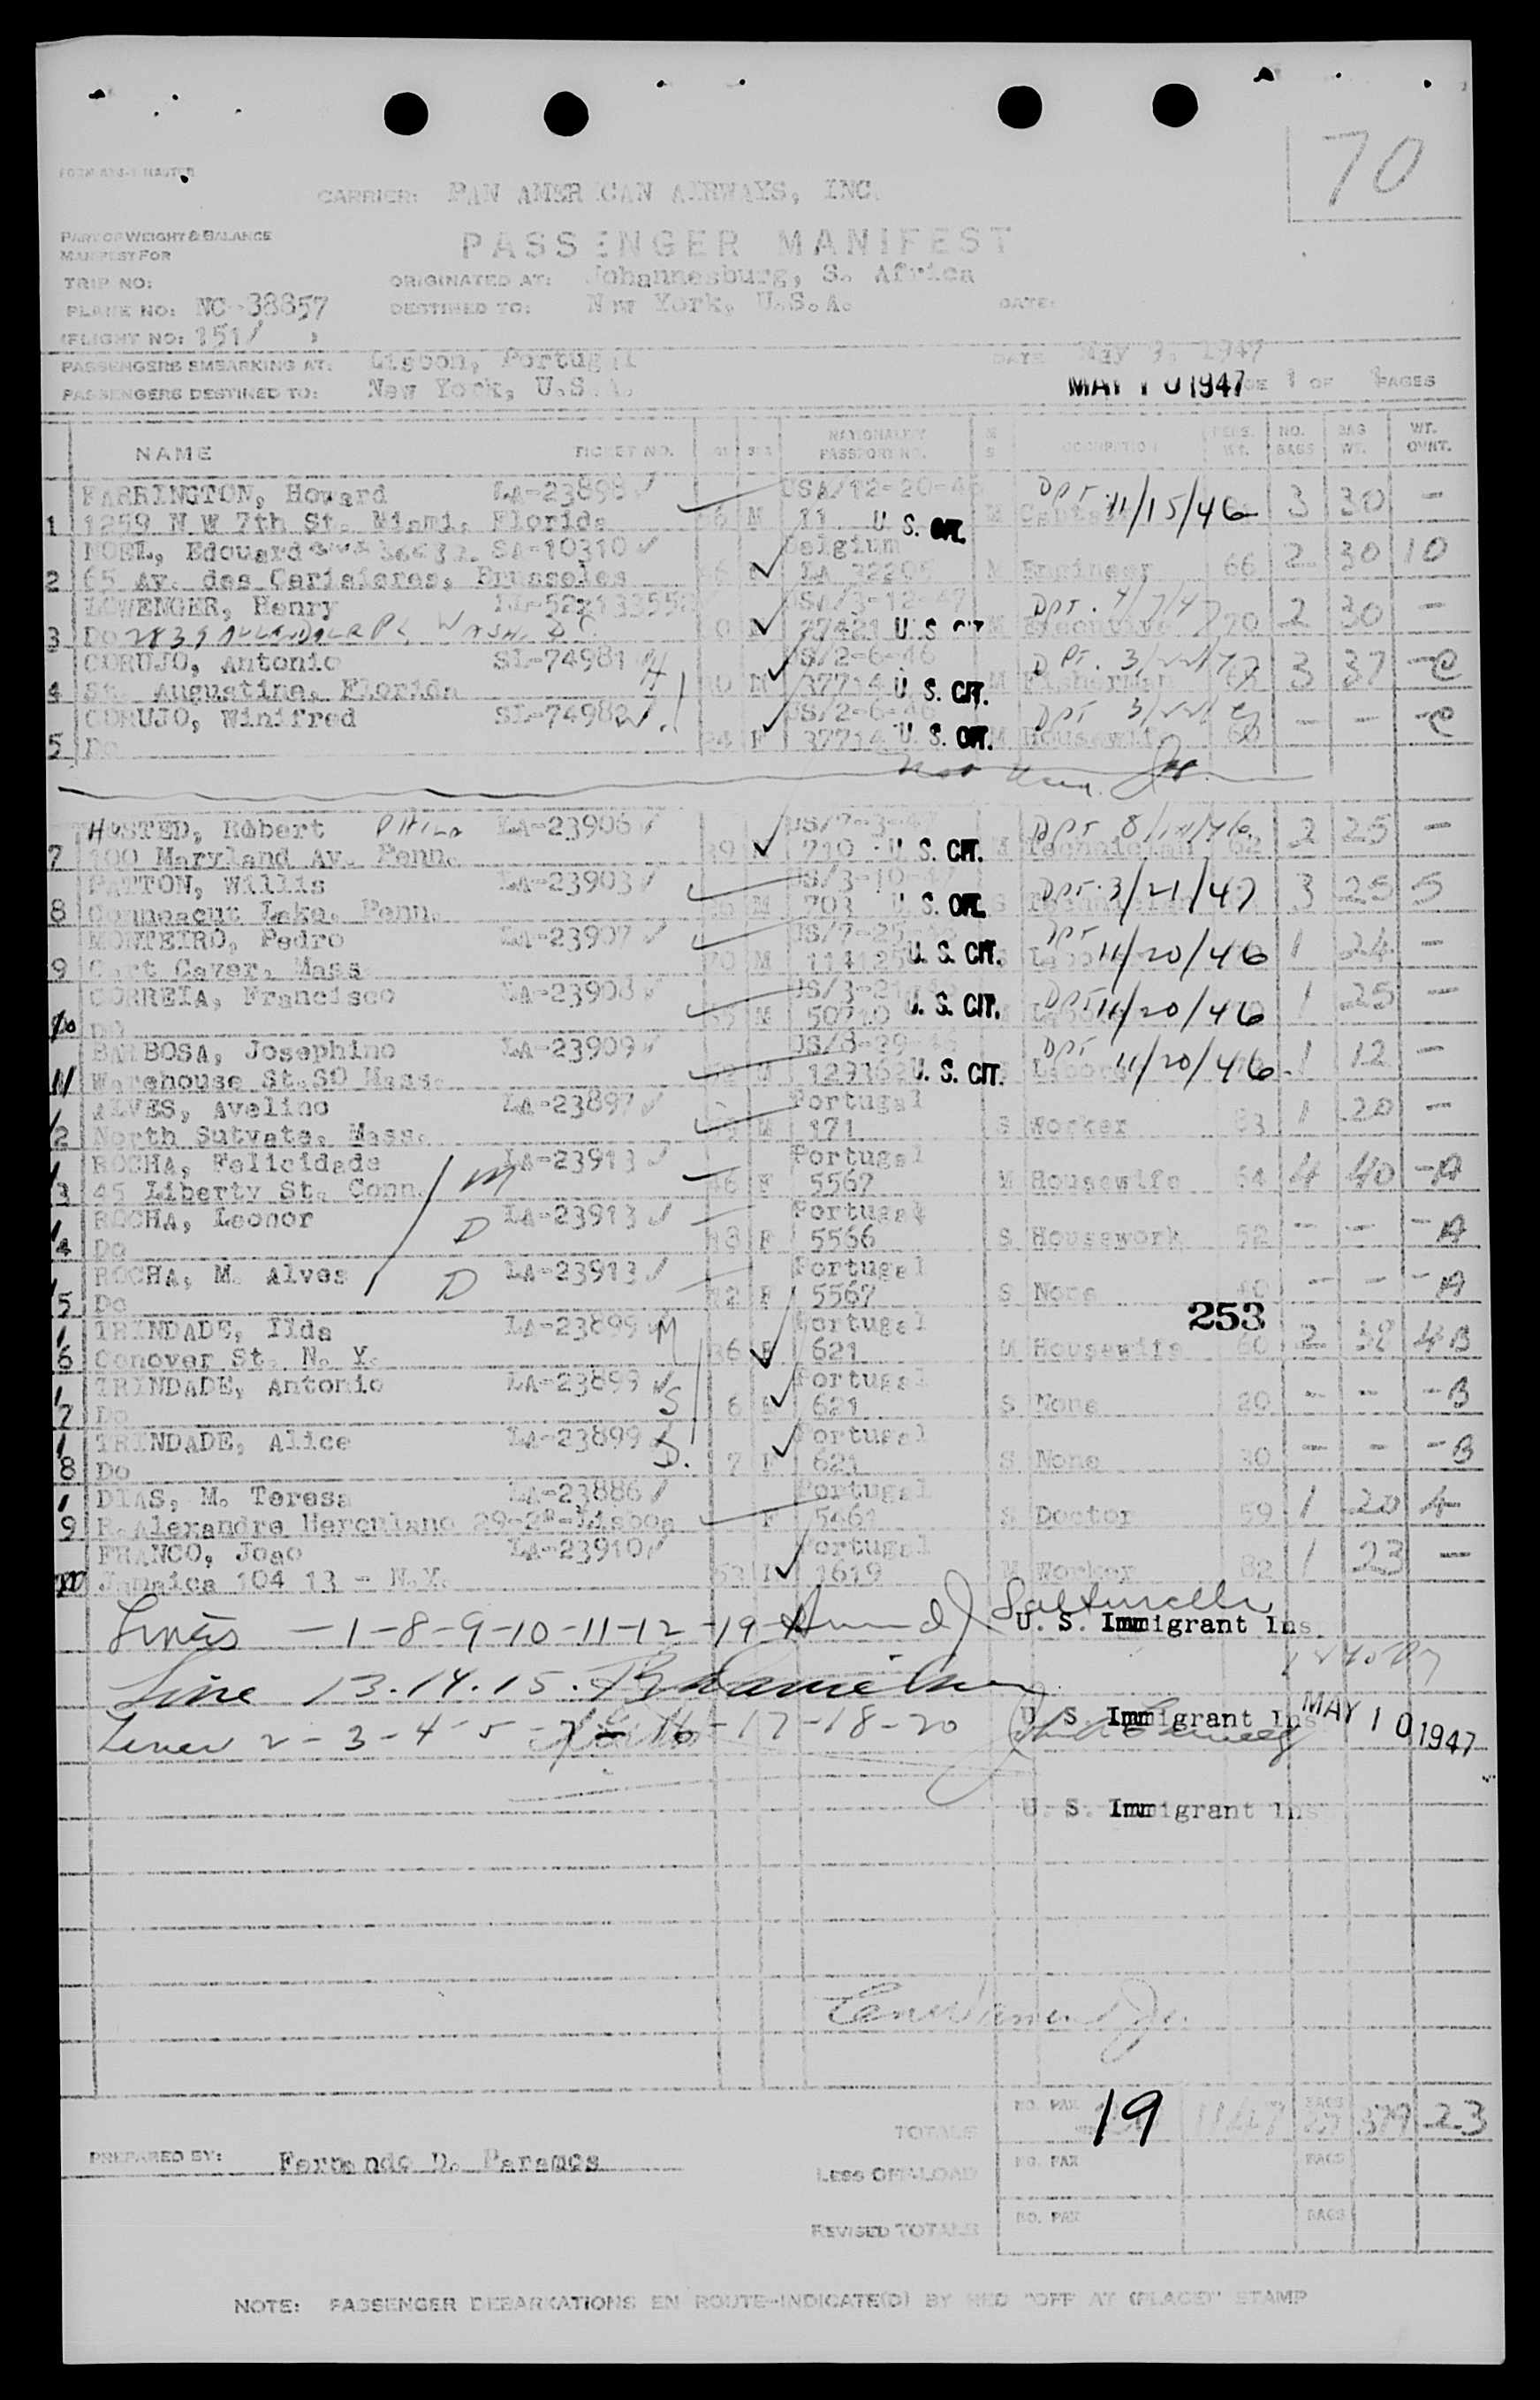 70
FORM
CARRIER: PAN AMERICAN AIRWAYS, INC.
PART OF WEIGHT & BALANCE
MANIFEST FOR
PASSENGER MANIFEST
TRIP NO:
ORIGINATED AT: Johannesburg, S. Africa
PLANE NO: NC-38857
DESTINED TO: New York, U.S.A.
DATE:
(FLIGHT NO: 151/ )
PASSENGERS EMBARKING AT: Lisbon, Portugal
DATE May 9, 1947
PASSENGERS DESTINED TO: New York, U.S.A.
MAY 10 1947
PAGE 1 OF 1 PAGES
NAME TICKET NO. SEX NATIONALITY PASSPORT NO. M S OCCUPATION PERS. WT. NO. BAGS BAG WT. WT. OVHT.
FARRINGTON, Howard LA-23898 USA/12-20-46 Dpt 11/15/46 3 30 -
1 1259 N W 7th St. Miami, Florida M 11 U S. CIT. M
NOEL, Edouard SA-10310 Belgium 2 30 10
2 65 Av. des Cerisieres, Brusseles LA 32205 M Engineer 66
LOWENGER, Henry USA/3-12-47 Dpt. 4/7/47 2 30 -
3 Do 2839 ALLENDALE PL WASH. DC 27421 U S CIT M Executive 70
CORUJO, Antonio SL-74981 H US/2-6-46 Dpt. 3/22/47 3 37 - C
4 St. Augustine, Florida M 37714 U. S. CIT. M Fisherman
CORUJO, Winifred SL-74982 US/2-6-46 Dpt 3/22/47 - - - C
5 Do F 37714 U. S. CIT. M Housewife 60
HUSTED, Robert PHILA LA-23906 Dpt 8/ /46 2 25 -
7 100 Maryland Av. Penn. 710 U. S. CIT. M Technician 62
PAYTON, Willis LA-23903 US/3-10-47 Dpt. 3/21/47 3 25 5
8 Conneacut Lake, Penn. M 703 U S. CIT. S
MONTEIRO, Pedro LA-23907 Dpt 11/20/46 1 24 -
9 Cort Caver, Mass M 114125 U. S. CIT. S
CORREIA, Francisco LA-23908 Dpt 11/20/46 1 25 -
10 Do M 50710 U. S. CIT.
BARBOSA, Josephino LA-23909 US/8-29-46 Dpt 11/20/46 1 12 -
11 Warehouse St.SO Mass. M 129362 U. S. CIT.
ALVES, Avelino LA-23897 Portugal 1 20 -
12 North Sutvate, Mass. M 171 S Worker 83
ROCHA, Felicidade M LA-23913 Portugal 4 40 - A
13 45 Liberty St. Conn. 46 F 5567 M Housewife 64
ROCHA, Leonor D LA-23913 Portugal - - - A
14 Do F 5566 S Housework 52
ROCHA, M. Alves D LA-23913 Portugal - - - A
15 Do 12 F 5567 S None 40
253
TRINDADE, Ilda LA-23899 M Portugal 2 38 4 B
16 Conover St. N. Y. 36 F 621 M Housewife 60
TRINDADE, Antonio LA-23899 S Portugal - - - B
17 Do 6 621 S None 20
TRINDADE, Alice LA-23899 D. Portugal - - - B
18 Do 7 F 621 S None 30
DIAS, M. Teresa LA-23886 Portugal 1 20 4
19 R.Alexandre Herculano 29-2º-Lisboa F 5461 S Doctor 59
FRANCO, Joao LA-23910 Portugal 1 23 -
20 Jamaica 104 13 - N.Y. 1619 M Worker 82
Lines - 1-8-9-10-11-12-19
U. S. Immigrant Ins.
Line 13.14.15.
U. S. Immigrant Ins
MAY 10 1947
Lines 2-3-4-5-7-16-17-18-20
U. S. Immigrant Ins
TOTALS NO. PAX 19 1147 BAGS 27 379 23
PREPARED BY: Fernando D. Paramos
LESS OFF-LOAD NO. PAX BAGS
REVISED TOTALS NO. PAX BAGS
NOTE: PASSENGER DEBARKATIONS EN ROUTE-INDICATE(D) BY RED "OFF AT (PLACE)" STAMP